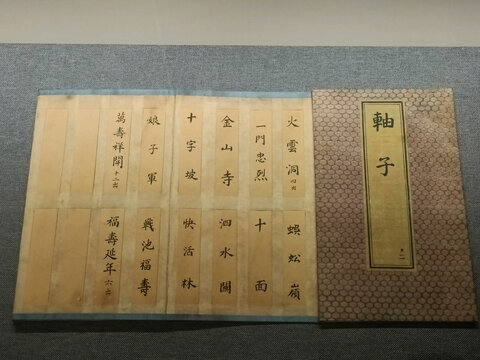 軸子
十二
火雲洞
一門忠烈
金山寺
十字坡
娘子軍
萬壽祥開 十二出
蜈蚣嶺
十面
泗水關
快活林
池福壽
福壽延年 六出